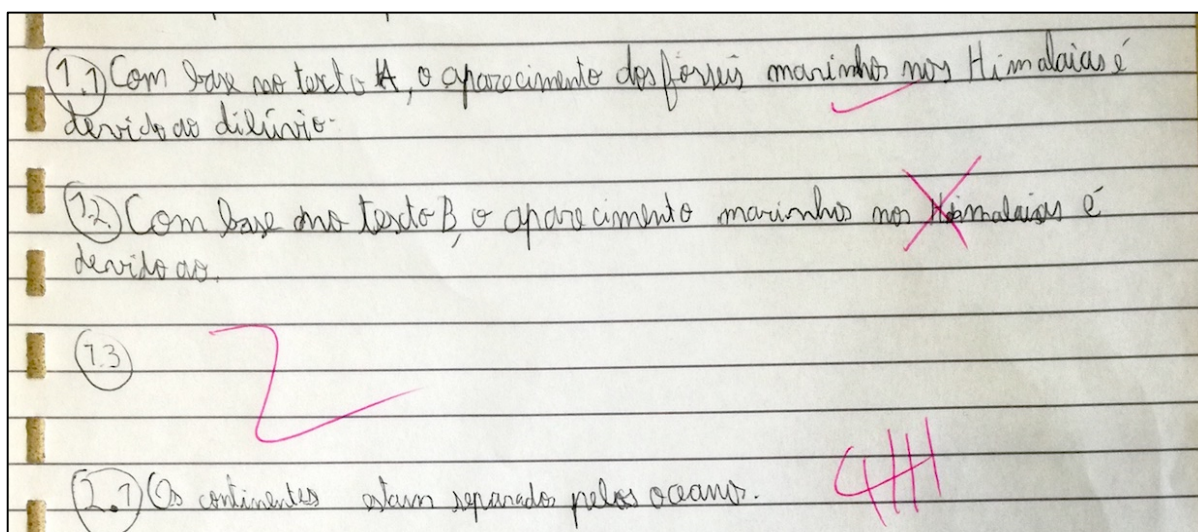 1.1 Com base no texto A, o aparecimento dos fósseis marinhos nos Himalaias é
devido ao dilúvio.
1.2 Com base no texto B, o aparecimento marinhos nos Himalaias é
devido ao.
1.3
2.1 Os continentes estam separados pelos oceanos.